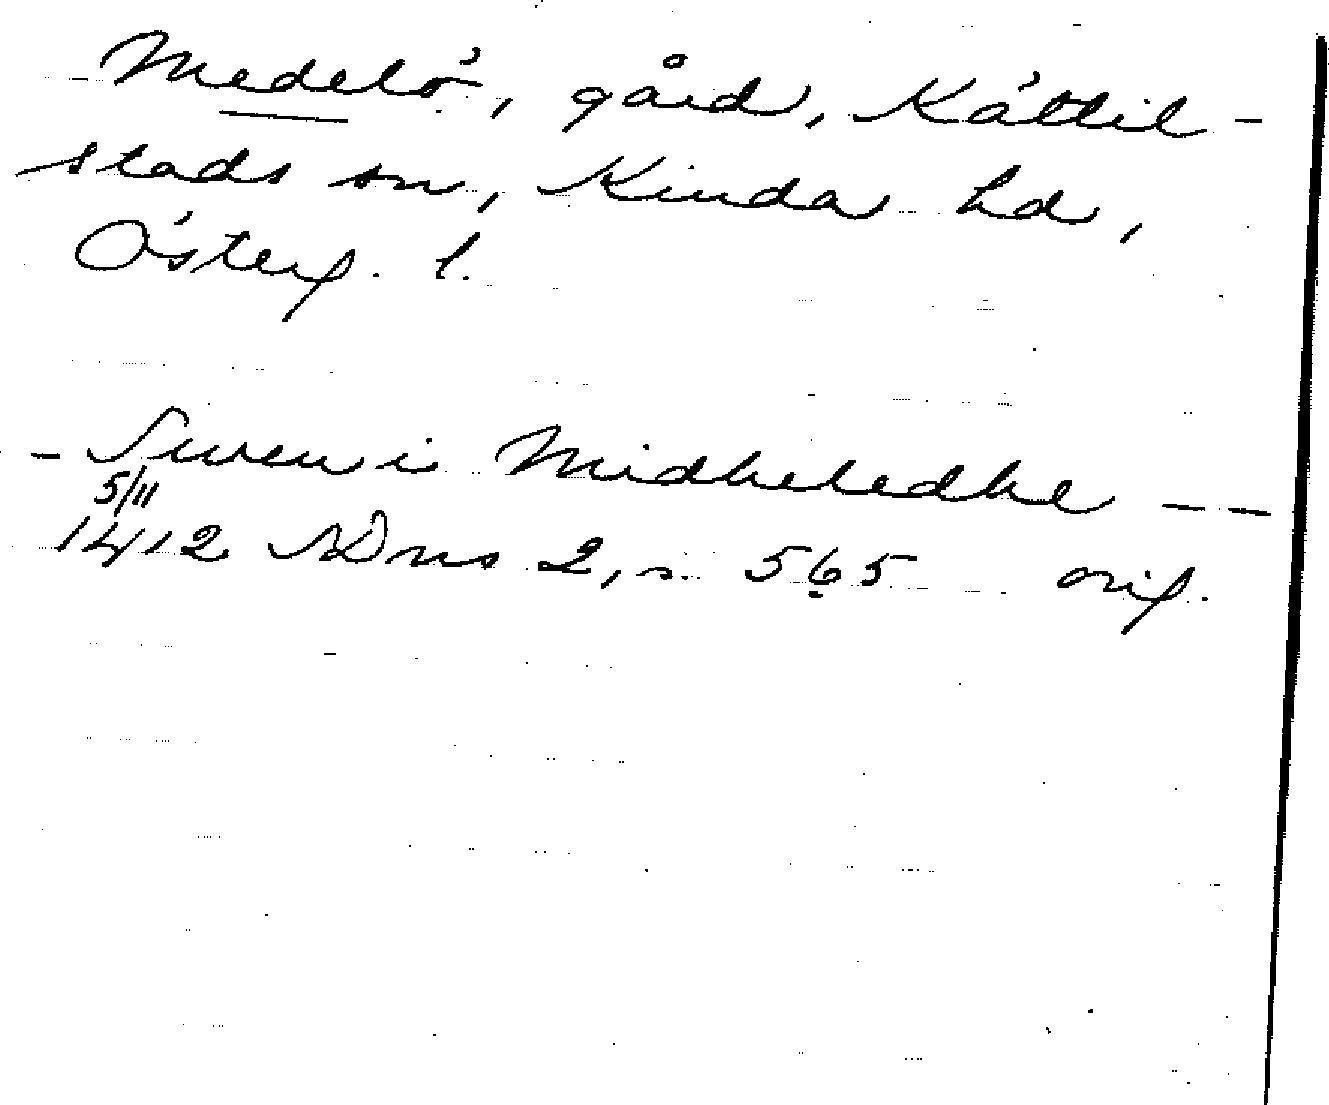 Medelö, gård, Kättil-
stads sn, Kinda hd,
Österg. l.
- Swen i Midheledhe - -
5/11
1412 SDns 2, s. 565 orig.